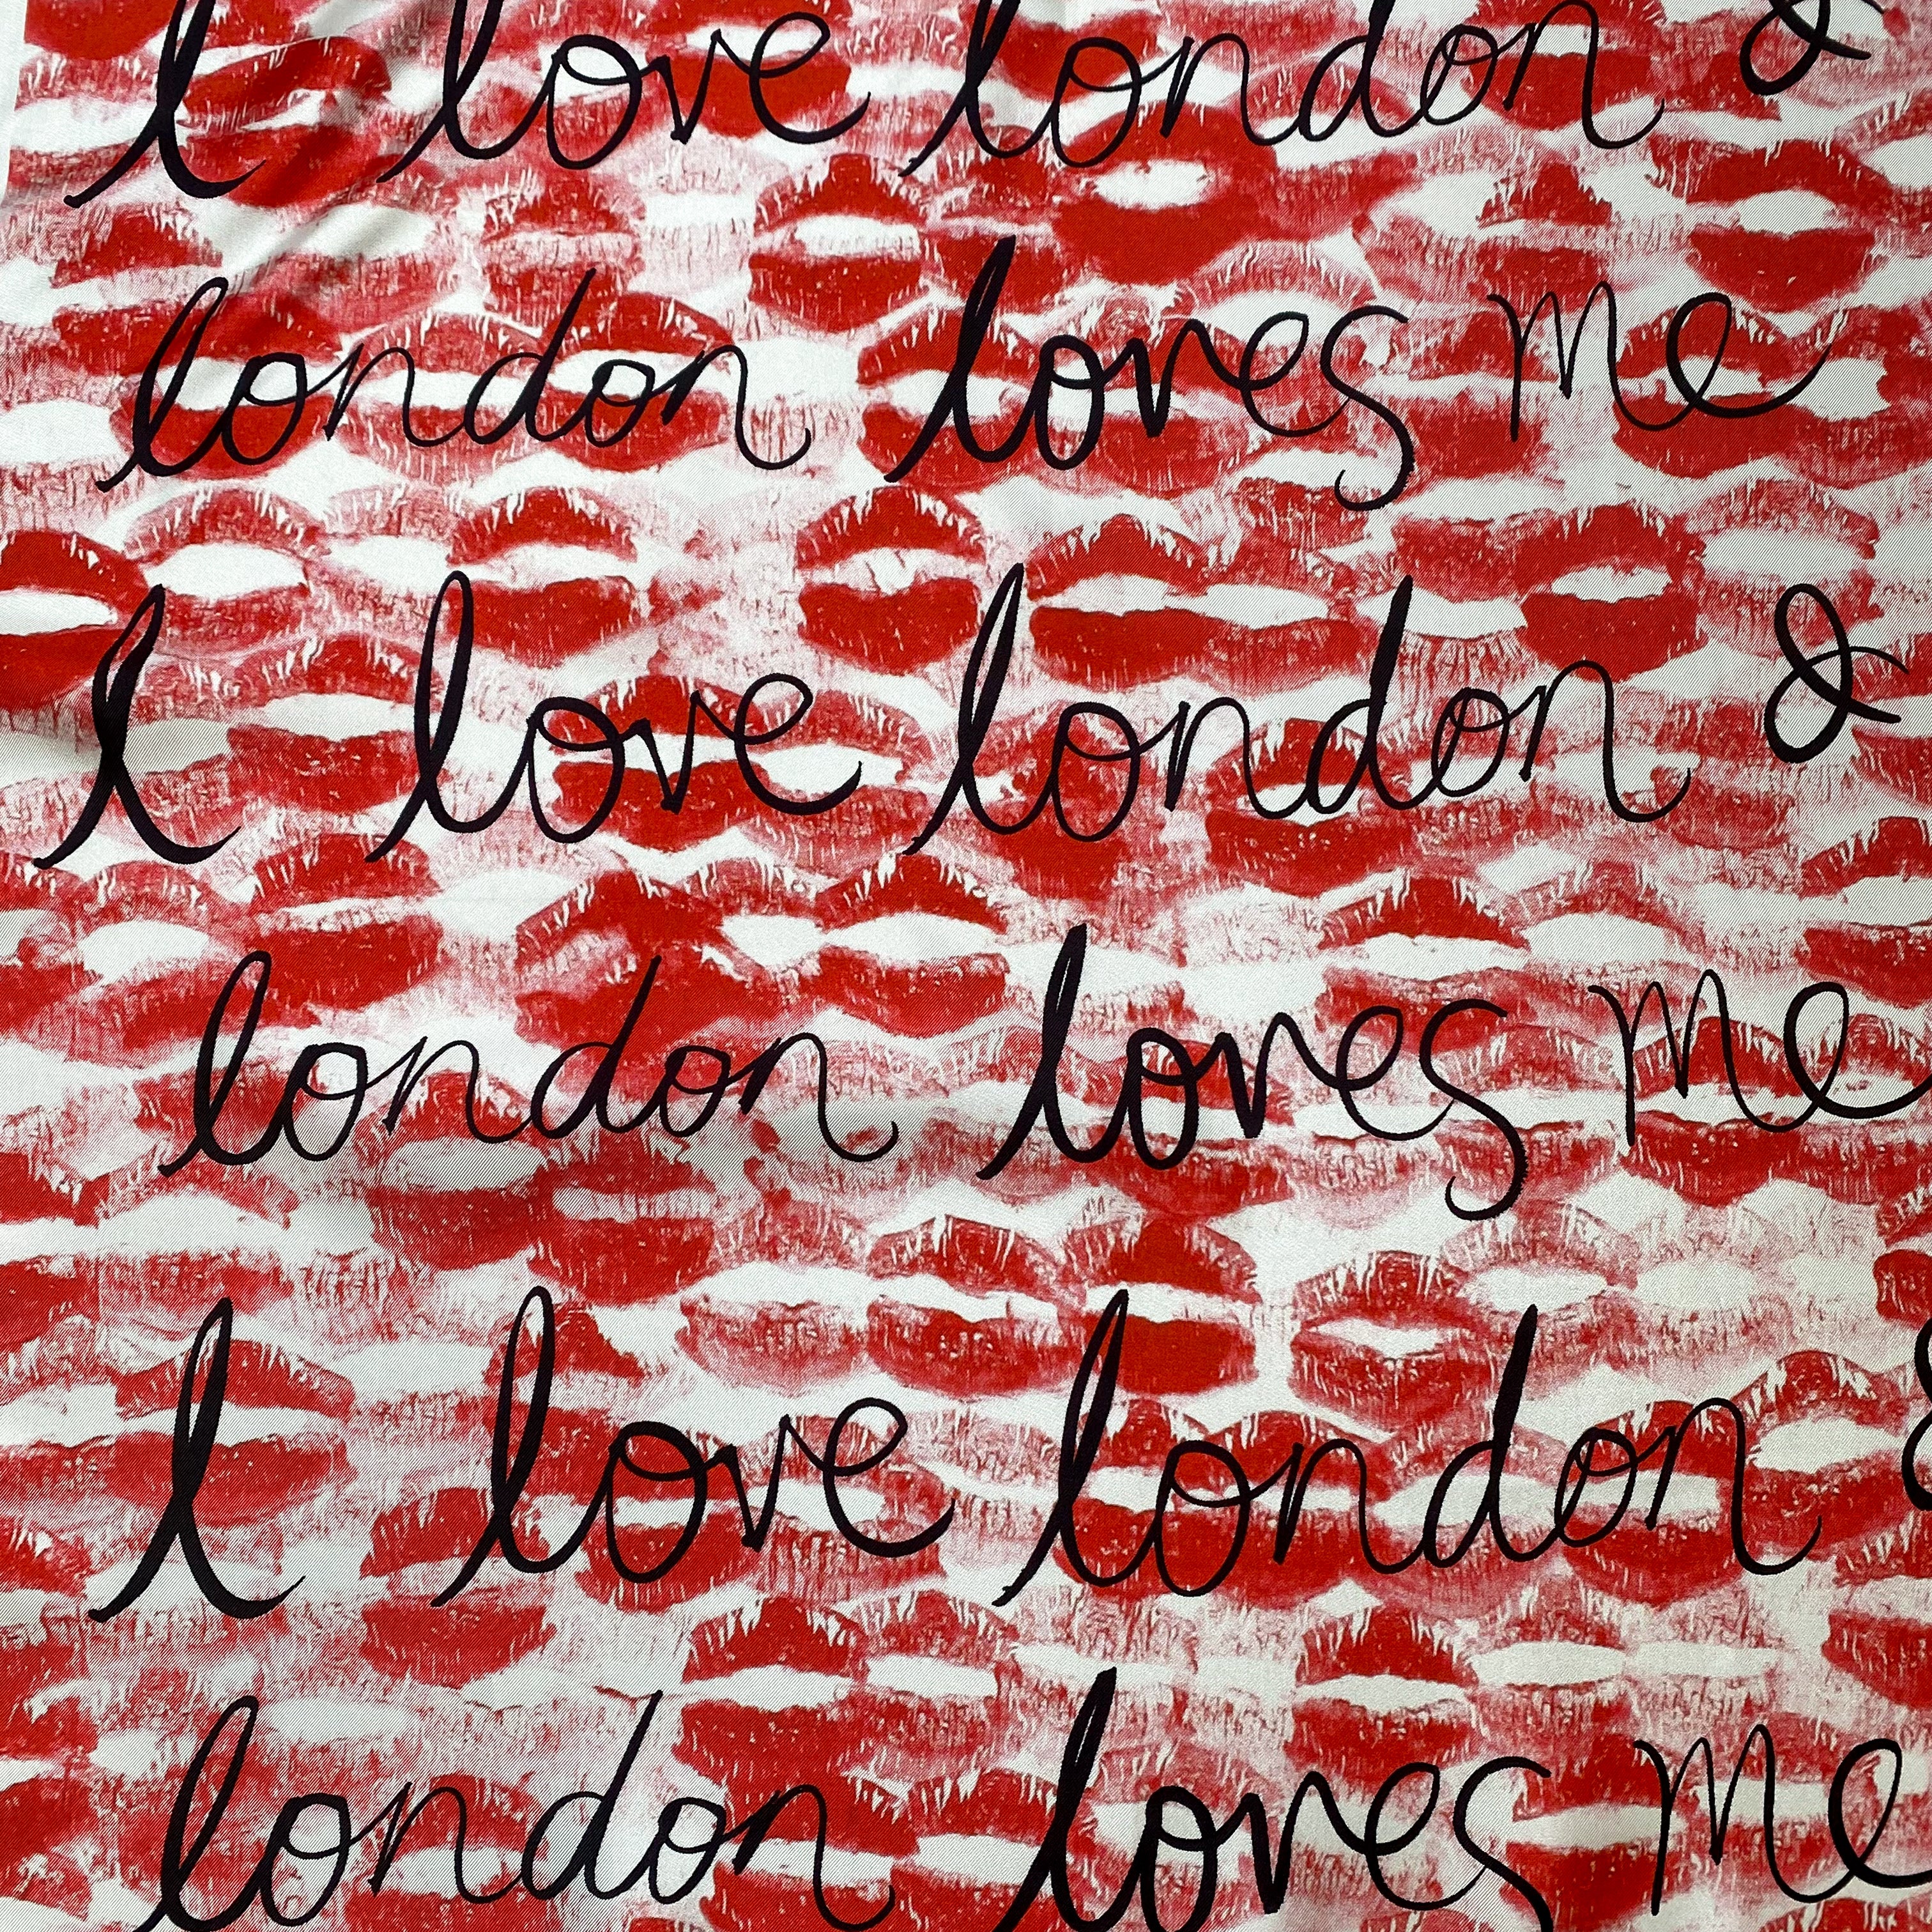 I love london &
london loves me
I love london &
london loves me
I love london &
london loves me